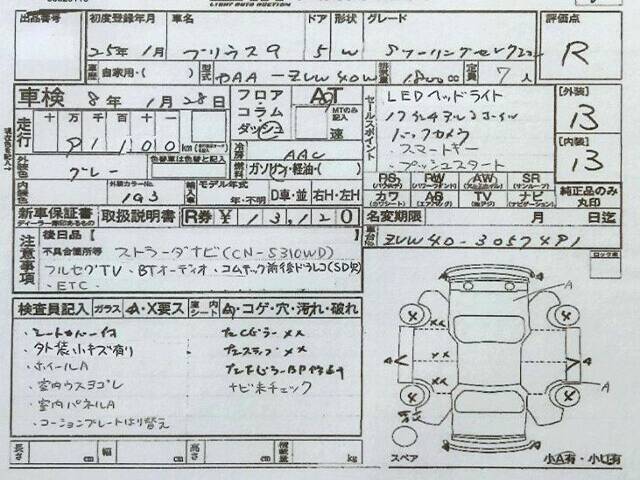 LIGHT AUTO AUCTION
出品番号 初度登録年月 車名 ドア 形状 グレード 評価点
25年 1月 プリウスα 5 W Sツーリングセレクション R
車歴 自家用・( ) 型式 DAA-ZVW40W 排気量 1800cc 定員 7人
車検 8年 1月 28日
フロア
コラム
ダッシュ
AT
MTのみ記入
速
セールスポイント
LEDヘッドライト
17インチアルミホイール
バックカメラ
スマートキー
プッシュスタート
[外装]
13
[内装]
13
現在色を記入
走行 十 万 千 百 十
91100 km
外装色 グレー 色替車は色替と記入
冷房 AAC
燃料 ガソリン・軽油・( )
内装色 外装カラーNo. 1G3
輸入車 モデル年式 年・不明 D車・並 右H・左H
PS (パワステ) PW (パワーウィンドウ) AW (アルミホイル) SR (サンルーフ)
カワ AB TV ナビ
純正品のみ丸印
新車保証書 取扱説明書 R券 ¥13,120
ディーラー印のあるもの
名変期限 月 日迄
車台No. ZVW40-3057491
注意事項
後日品( )
不具合箇所等
ストラーダナビ(CN-S310WD)
フルセグTV・BTオーディオ・コムテック前後ドラレコ(SD欠)
・ETC
検査員記入 ガラス A・X要ス 車内シート A・コゲ・穴・汚れ・破れ
・シートカバー
・外装小キズ有り
・ホイールA
・室内ウスヨゴレ
・室内パネルA
・コーションプレート貼り替え
ナビ未チェック
A
A
スペア
小A有・小U有
長さ cm 幅 cm 高さ cm 積載量 kg